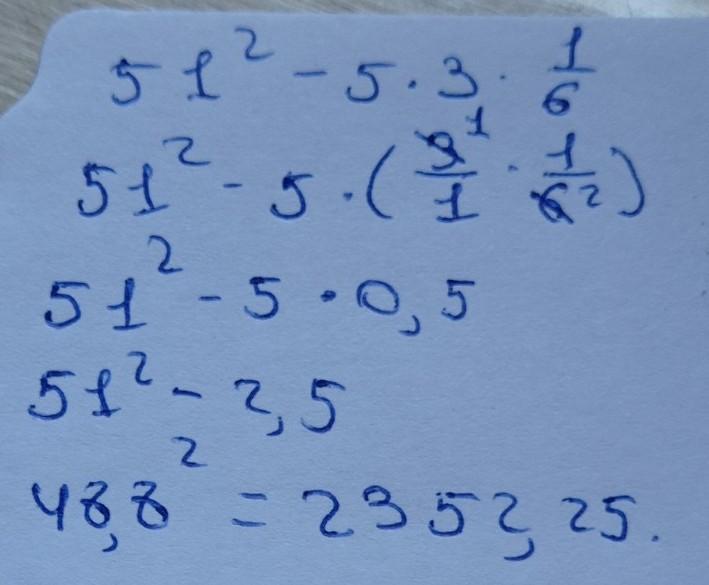 51² - 5 · 3 · 1/6
51² - 5 · (3¹/1 · 1/6²)
51² - 5 · 0,5
51² - 2,5
48,8² = 2352,25.